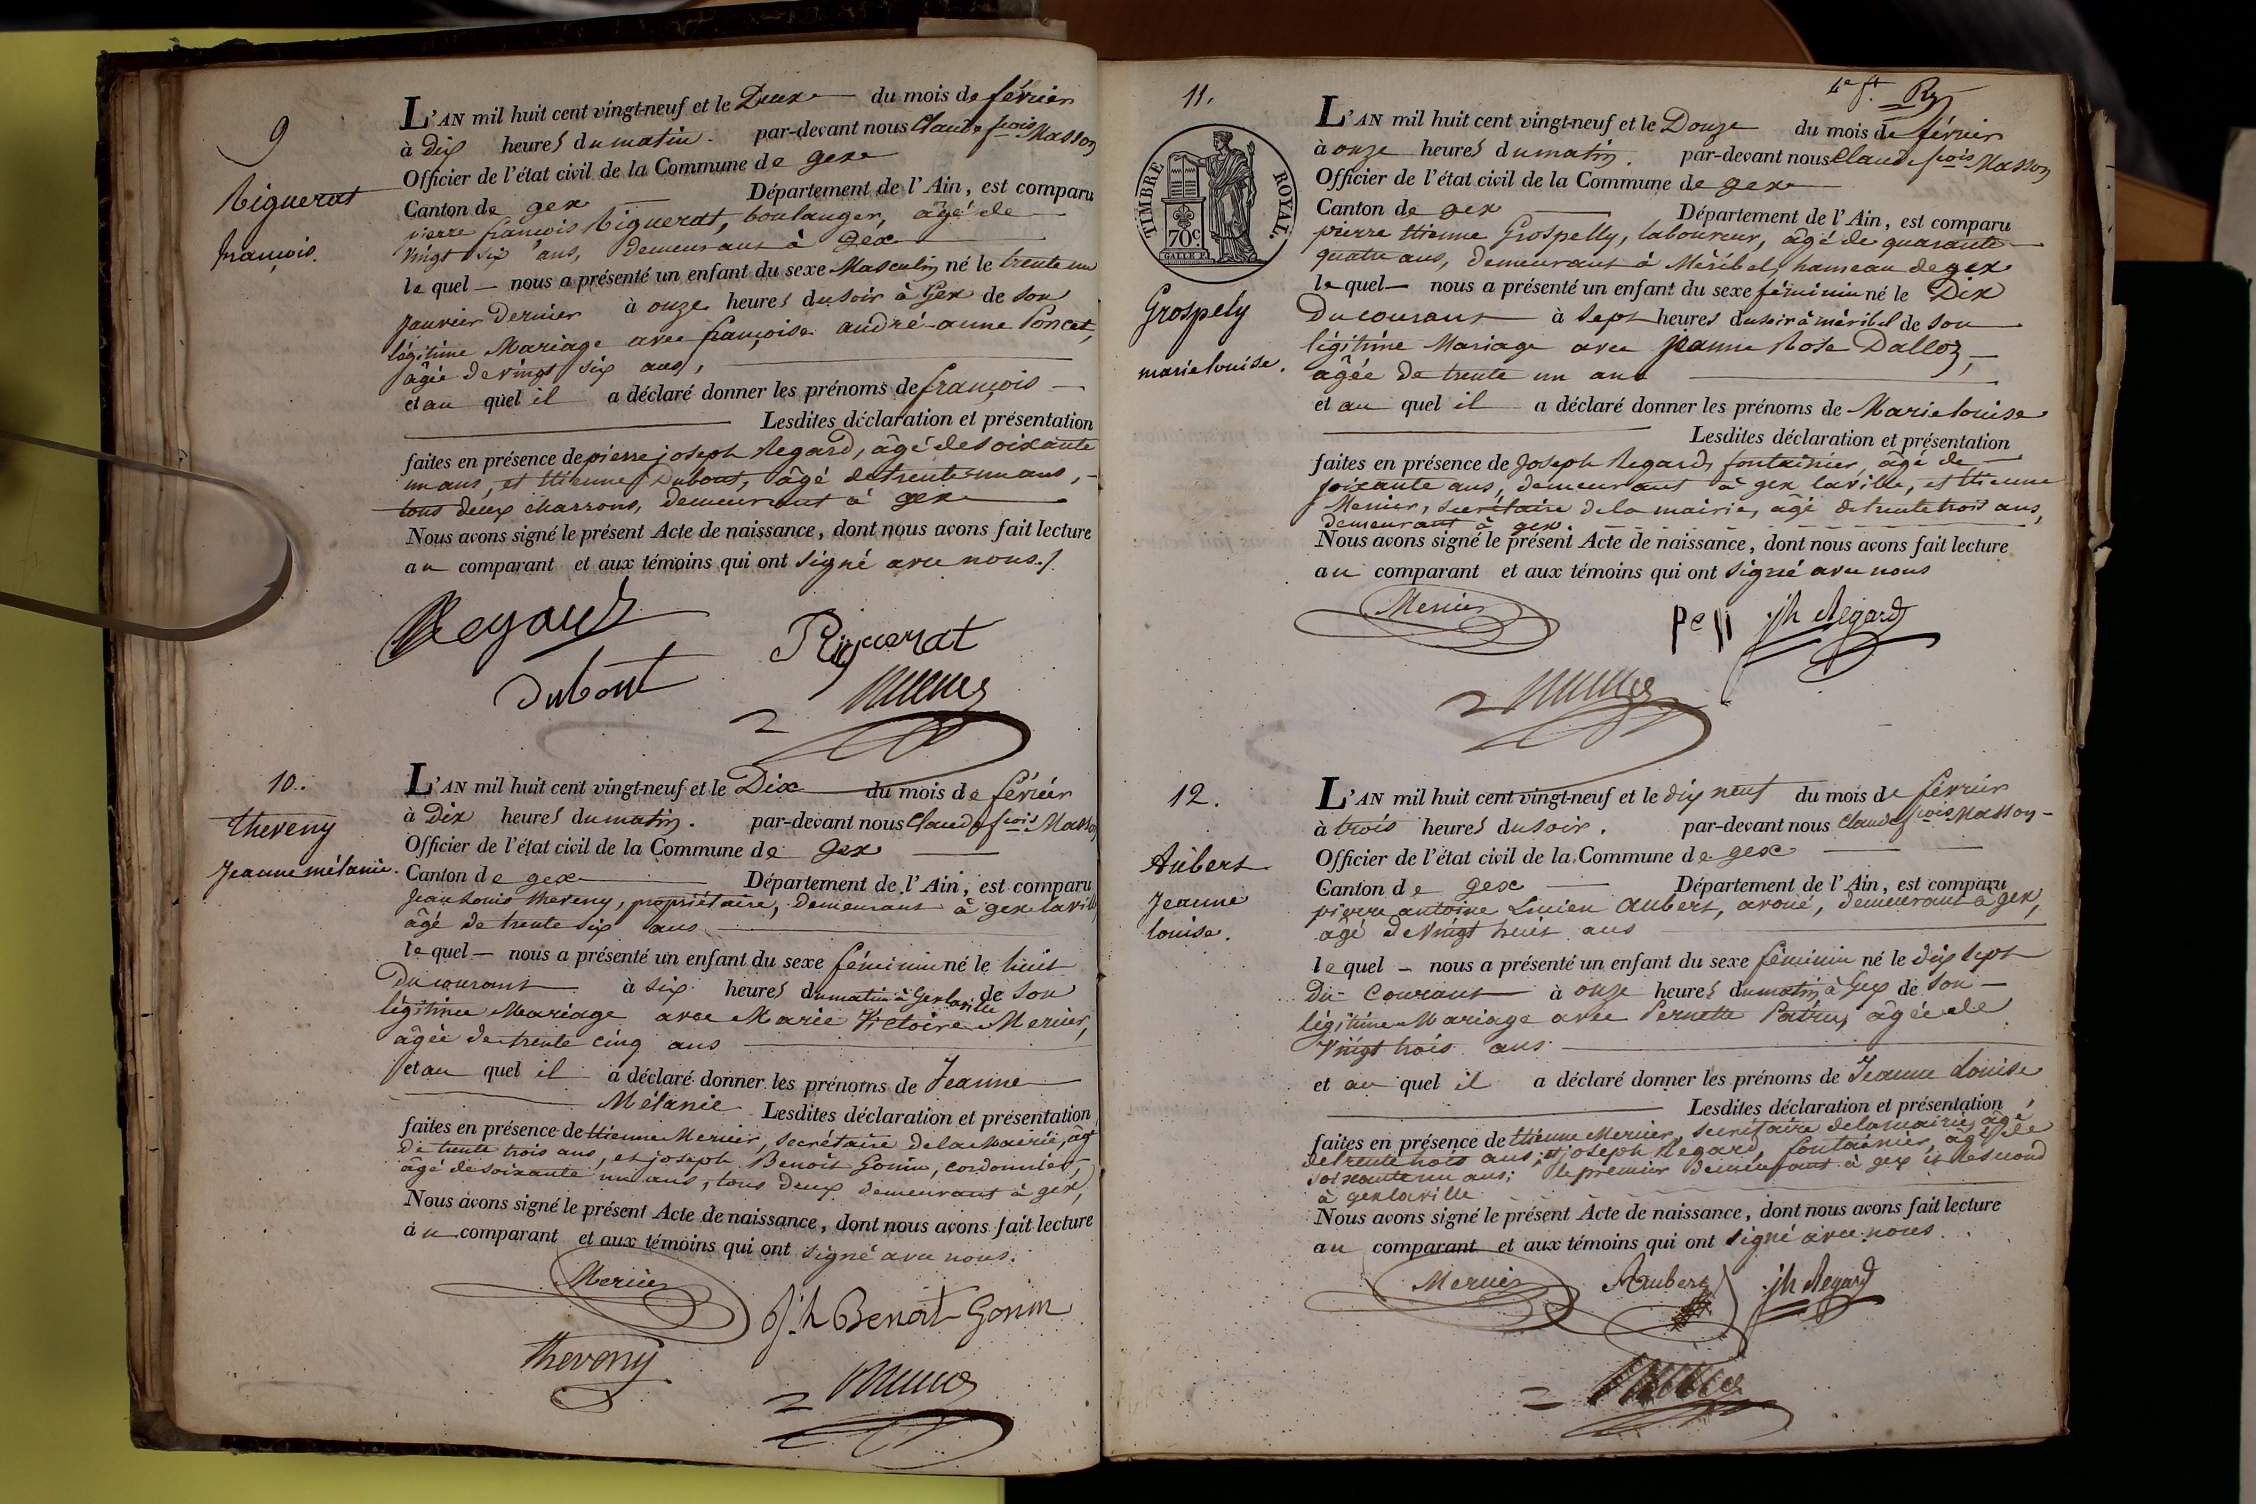 9
Riguerat
françois.
L'AN mil huit cent vingt-neuf et le Deux du mois de février
à dix heures du matin. par-devant nous Claude fçois Masson
Officier de l'état civil de la Commune de gex
Canton de gex Département de l'Ain, est comparu
pierre françois Riguerat, boulanger, âgé de
vingt six ans, demeurant à Gex
lequel nous a présenté un enfant du sexe Masculin né le trente un
janvier dernier à onze heures du soir à Gex de son
légitime Mariage avec françoise andré-anne Poncet,
âgée de vingt six ans,
et au quel il a déclaré donner les prénoms de françois
Lesdites déclaration et présentation
faites en présence de pierre joseph Regard, âgé de soixante
un ans, et Etienne Dubout, âgé de trente un ans,
tous deux charrons, demeurant à gex
Nous avons signé le présent Acte de naissance, dont nous avons fait lecture
au comparant et aux témoins qui ont signé avec nous./.
Regard
Riguerat
Dubout
10.
theveny
Jeanne mélanie.
L'AN mil huit cent vingt-neuf et le Dix du mois de février
à Dix heures du matin. par-devant nous Claude fçois Masson
Officier de l'état civil de la Commune de gex
Canton de gex Département de l'Ain, est comparu
Jean Louis theveny, propriétaire, demeurant à gex laville
âgé de trente six ans
lequel nous a présenté un enfant du sexe féminin né le huit
Du courant à six heures du matin à Gex laville de son
légitime Mariage avec Marie Victoire Mercier,
âgée de trente cinq ans
et au quel il a déclaré donner les prénoms de Jeanne
Mélanie Lesdites déclaration et présentation
faites en présence de Etienne Mercier, secrétaire de la Mairie, âgé
de trente trois ans, et joseph Benoit Gonin, cordonnier,
âgé de soixante un ans, tous deux demeurant à gex,
Nous avons signé le présent Acte de naissance, dont nous avons fait lecture
au comparant et aux témoins qui ont signé avec nous.
Mercier
Jh Benoit Gonin
theveny
11.
TIMBRE ROYAL.
70c
Grospely
marie louise.
L'AN mil huit cent vingt-neuf et le Douze du mois de février
à onze heures du matin. par-devant nous Claude fçois Masson
Officier de l'état civil de la Commune de gex
Canton de gex Département de l'Ain, est comparu
pierre Etienne Grospelly, laboureur, âgé de quarante
quatre ans, demeurant à Méribel, hameau de gex
lequel nous a présenté un enfant du sexe féminin né le Dix
Du courant à Sept heures du soir à méribel de son
légitime Mariage avec jeanne Rose Dalloz,
âgée de trente un ans
et au quel il a déclaré donner les prénoms de Marie louise
Lesdites déclaration et présentation
faites en présence de Joseph Regard, fontainier, âgé de
soixante ans, demeurant à gex laville, et Etienne
Mercier, secrétaire de la mairie, âgé de trente trois ans,
demeurant à gex.
Nous avons signé le présent Acte de naissance, dont nous avons fait lecture
au comparant et aux témoins qui ont signé avec nous
Mercier
jh Regard
12.
Aubert
Jeanne
louise.
L'AN mil huit cent vingt-neuf et le dix neuf du mois de février
à trois heures du soir. par-devant nous Claude fçois Masson
Officier de l'état civil de la Commune de gex
Canton de gex Département de l'Ain, est comparu
pierre antoine Lucien Aubert, avoué, demeurant à gex,
âgé de Vingt huit ans
lequel nous a présenté un enfant du sexe féminin né le dix sept
Du Courant à onze heures du matin à Gex de son
légitime Mariage avec Pernette Patru, âgée de
Vingt trois ans
et au quel il a déclaré donner les prénoms de Jeanne Louise
Lesdites déclaration et présentation
faites en présence de Etienne Mercier, secrétaire de la mairie, âgé
de trente trois ans; et joseph Regard, fontainier, âgé de
soixante un ans; le premier demeurant à gex et le second
à gex laville
Nous avons signé le présent Acte de naissance, dont nous avons fait lecture
au comparant et aux témoins qui ont signé avec nous.
Mercier
Aubert
jh Regard